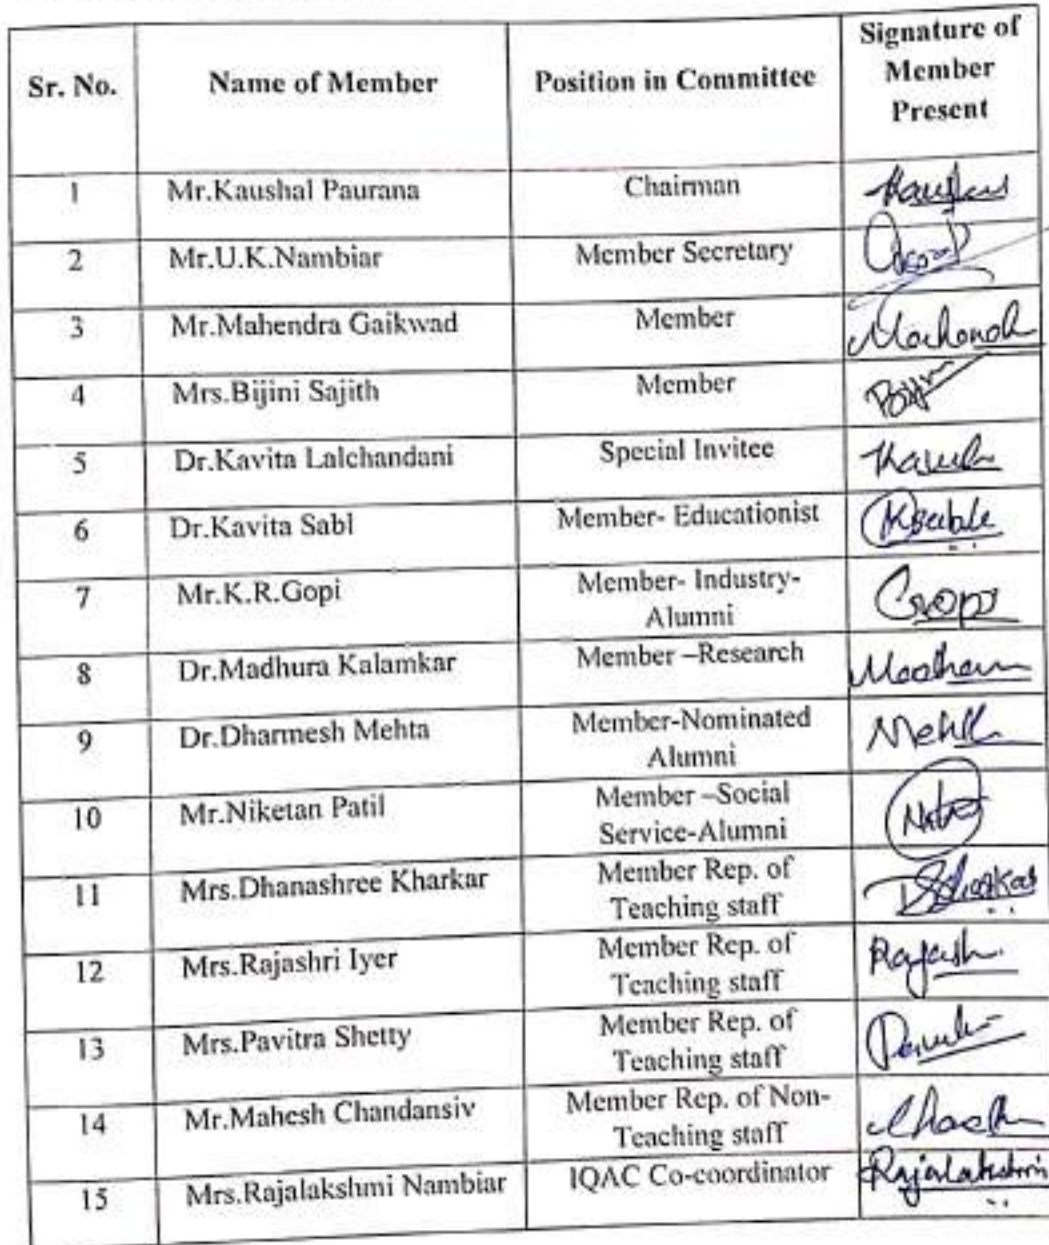 Sr. No. Name of Member Position in Committee Signature of
Member
Present
1 Mr.Kaushal Paurana Chairman
2 Mr.U.K.Nambiar Member Secretary
3 Mr.Mahendra Gaikwad Member
4 Mrs.Bijini Sajith Member
5 Dr.Kavita Lalchandani Special Invitee
6 Dr.Kavita Sabl Member- Educationist
7 Mr.K.R.Gopi Member- Industry-
Alumni
8 Dr.Madhura Kalamkar Member –Research
9 Dr.Dharmesh Mehta Member-Nominated
Alumni
10 Mr.Niketan Patil Member –Social
Service-Alumni
11 Mrs.Dhanashree Kharkar Member Rep. of
Teaching staff
12 Mrs.Rajashri Iyer Member Rep. of
Teaching staff
13 Mrs.Pavitra Shetty Member Rep. of
Teaching staff
14 Mr.Mahesh Chandansiv Member Rep. of Non-
Teaching staff
15 Mrs.Rajalakshmi Nambiar IQAC Co-coordinator Rajalakshmi